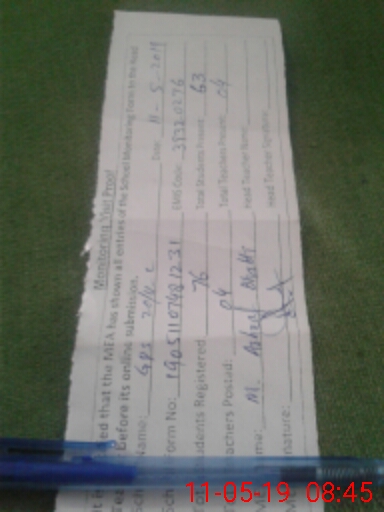 Monitoring Visit Proof
ed that the MEA has shown all entries of the School Monitoring Form to the Head
before its online submission.
Name: GPS Date: 11-5-2019
Form No: 19051107481231 EMIS Code: 38320276
Students Registered 76 Total Students Present: 63
achers Posted: 04 Total Teachers Present: 04
me: M. Head Teacher Name:
nature: Head Teacher Signature:
11-05-19 08:45